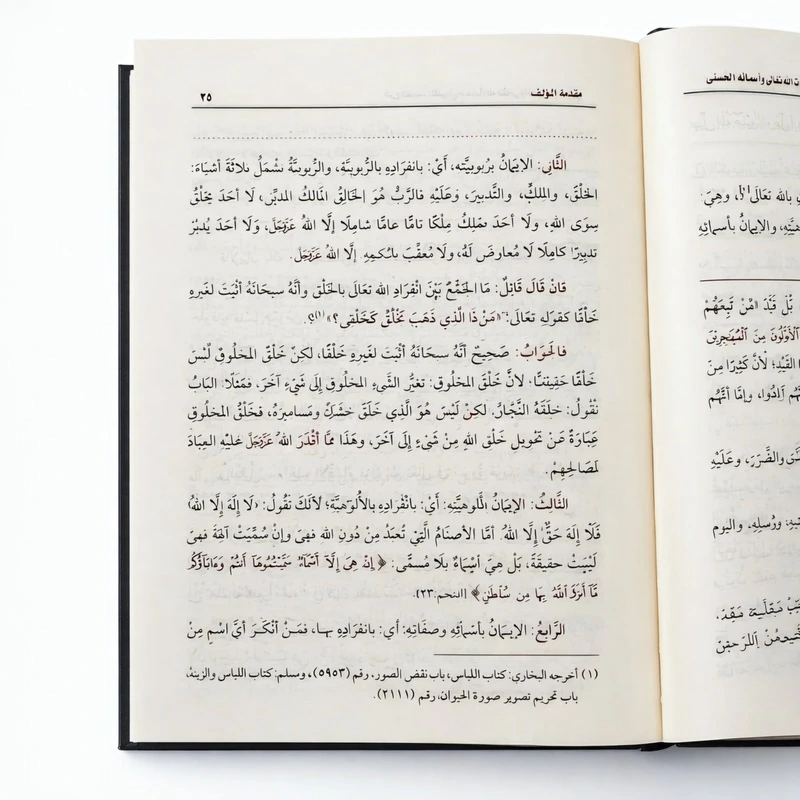 مقدمة المؤلف ٢٥
الثَّانِي: الإِيمَانُ بِرُبوبيَّته، أَيْ: بانفرَادِهِ بالرُّبوبيَّةِ، والرُّبوبيَّةُ تشْمَلُ ثلاثَةَ أشيَاءَ:
الخلْقَ، والملكَ، والتَّدبيرَ، وعَلَيْهِ فالرَّبُّ هُوَ الخَالِقُ المَالكُ المدبِّر، لَا أحَدَ يخلُقُ
سِوَى اللهِ، ولَا أحَدَ يملِكُ مِلْكًا تامًّا عامًّا شاملًا إلَّا اللهُ عَزَّوَجَلَّ، وَلَا أحَدَ يُدبِّرُ
تدبِيرًا كامِلًا لَا مُعارضَ لَهُ، ولَا مُعقِّبَ إلَّا اللهُ عَزَّوَجَلَّ.
فانْ قَالَ قَائِلٌ: مَا الجَمْعُ بَيْنَ انْفِرَادِ الله تعَالَى بالخَلْقِ وأنَّهُ سبحَانَهُ أثبَتَ لغَيرِهِ
خَلْقًا كقَولِهِ تعَالَى: «مَنْ ذَا الَّذِي ذَهَبَ يَخْلُقُ كَخَلْقِي؟»(١)؟.
فالجَوَابُ: صَحِيحٌ أنَّهُ سبحَانَهُ أثبَتَ لغَيرِهِ خَلْقًا، لكنْ خَلْقُ المخلُوقِ لَيْسَ
خَلْقًا حَقِيقيًّا؛ لأنَّ خَلْقَ المخلُوق: تغيُّرُ الشَّيْءِ المخلُوقِ إلَى شَيْءٍ آخَرَ، فمَثَلًا: البَابُ
نَقُولُ: خلَقَهُ النَّجَّارُ، لكنْ لَيْسَ هُوَ الَّذِي خَلَقَ خشَبَهُ ومسَامِيرَهُ، فخَلْقُ المخلُوقِ
عِبَارَةٌ عَنْ تحْوِيلِ خَلْقِ اللهِ مِنْ شَيْءٍ إلَى آخَرَ، وهَذَا ممَّا أقْدَرَ اللهُ عَزَّوَجَلَّ عَلَيْهِ العِبَادَ
لمَصَالحِهِمْ.
الثَّالِثُ: الإيمَانُ بألوهيَّتِهِ: أَيْ: بانْفرَادِهِ بالأُلوهيَّةِ؛ نَقُولُ: «لَا إِلَهَ إِلَّا اللهُ»
فَلَا إِلَهَ حَقٌّ إِلَّا اللهُ. أمَّا الأصنَامُ الَّتِي تُعبَدُ مِنْ دُونِ اللهِ فهِيَ وإِنْ سُمِّيَتْ آلِهَةً فهِيَ
لَيْسَتْ حَقِيقَةً، بَلْ هِيَ أسْمَاءٌ بلَا مُسمَّى: ﴿إِنْ هِيَ إِلَّا أَسْمَاءٌ سَمَّيْتُمُوهَا أَنتُمْ وَءَابَآؤُكُم
مَّا أَنزَلَ ٱللَّهُ بِهَا مِن سُلْطَٰنٍ﴾ [النجم:٢٣].
الرَّابِعُ: الإيمَانُ بأسمَائِهِ وصفَاتِهِ: أي: بانفرَادِهِ بهَا، فمَنْ أنْكَرَ أيَّ اسْمٍ مِنْ
(١) أخرجه البخاري: كتاب اللباس، باب نقض الصور، رقم (٥٩٥٣)، ومسلم: كتاب اللباس والزينة،
باب تحريم تصوير صورة الحيوان، رقم (٢١١١).
الله تعالى وأسمائه الحسنى
بالله تعَالَى، وهِيَ:
والإيمَانُ بأسمَائِهِ
بَلْ قَيَّدَ «مَنْ تَبِعَهُمْ
الْأَوَّلُونَ مِنَ
القَيْدِ؛ لأنَّ كَثيرًا مِنَ
وإمَّا أنَّهُم
والضَّرَرَ، وعَلَيْهِ
ورُسُلِهِ، واليوم